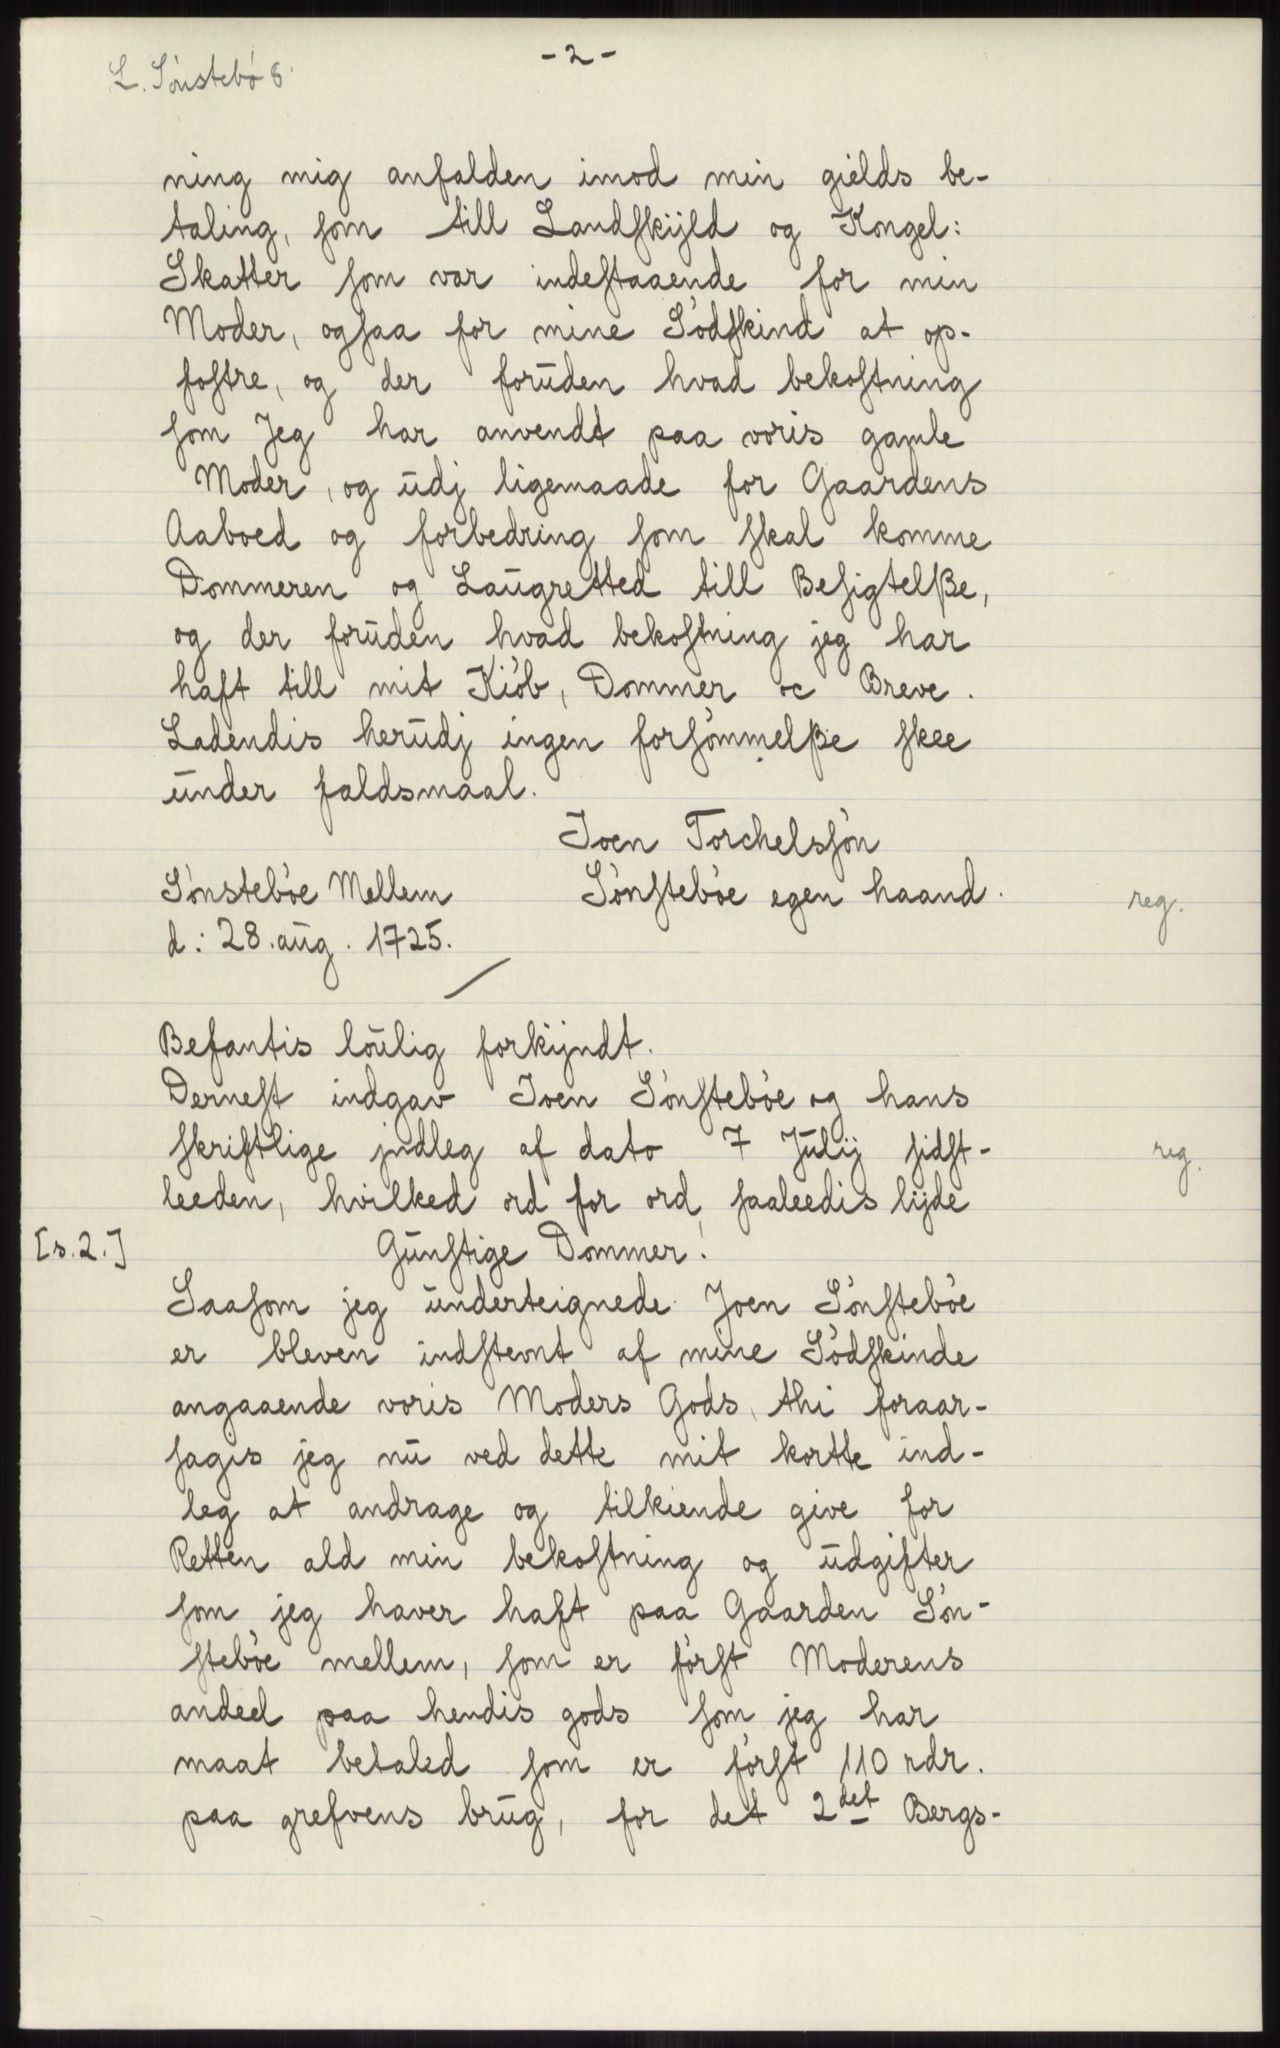 - 2 -
L. Sönstebö 8
ning mig anfalden imod min gields be-
taling, som till Landskÿld og Kongel:
Skatter som var indestaaende for min
Moder, ogsaa for mine Södskind at op-
fostre, og der foruden hvad bekostning
som Jeg har anvendt paa voris gamle
Moder, og udj ligemaade for Gaardens
Aaboed og forbedring som skal komme
Dommeren og Laugretted till Besigtelße,
og der foruden hvad bekostning jeg har
haft till mit Kiöb, Dommer oc Breve.
Ladendis herudj ingen forsömmelße skee
under faldsmaal.
Joen Torchelssön
Sönstebøe Mellem Sönsteböe egen haand. reg.
d: 28. aug. 1725.
Befantis loulig forkÿndt.
Dernest indgav Joen Sönsteböe og hans
skriftlige jndleg af dato 7 Julij sidst- reg.
leeden, hvilked ord for ord, saaleedis lÿde
[s. 2.] Gunstige Dommer!
Saasom jeg underteignede Joen Sönsteböe
er bleven indstevnt af mine Södskinde
angaaende voris Moders Gods, thi foraar-
sages jeg nu ved dette mit kortte ind-
leg at andrage og tilkiende give for
Retten ald min bekostning og udgifter
som jeg haver haft paa Gaarden Sön-
steböe mellem, som er först Moderens
andeel paa hendis gods som jeg har
maat betaled som er först 110 rdr.
paa grefvens brug, for det 2det Bergs-